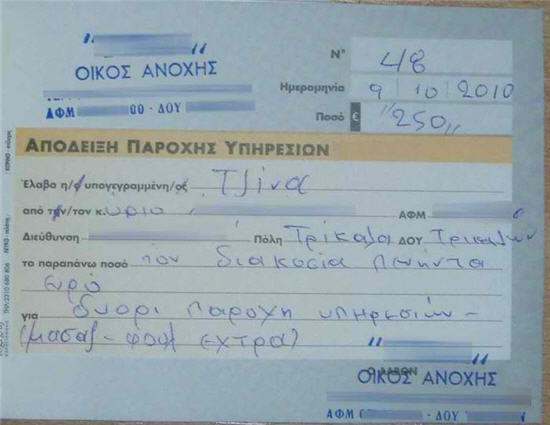 ΟΙΚΟΣ ΑΝΟΧΗΣ
ΑΦΜ 00 - ΔΟΥ
Νº 48
Ημερομηνία 9 10 2010
Ποσό € "250"
ΑΠΟΔΕΙΞΗ ΠΑΡΟΧΗΣ ΥΠΗΡΕΣΙΩΝ
Έλαβα η/ο υπογεγραμμένη/ος Τζίνα
από την/τον κ. ύριο ΑΦΜ
Διεύθυνση Πόλη Τρίκαλα ΔΟΥ Τρικάλων
το παραπάνω ποσό των διακόσια πενήντα
ευρώ
για δυορι παροχή υπηρεσιών -
(μασαζ - φουλ εχτρα)
Ο ΛΑΒΩΝ
ΟΙΚΟΣ ΑΝΟΧΗΣ
ΑΦΜ - ΔΟΥ